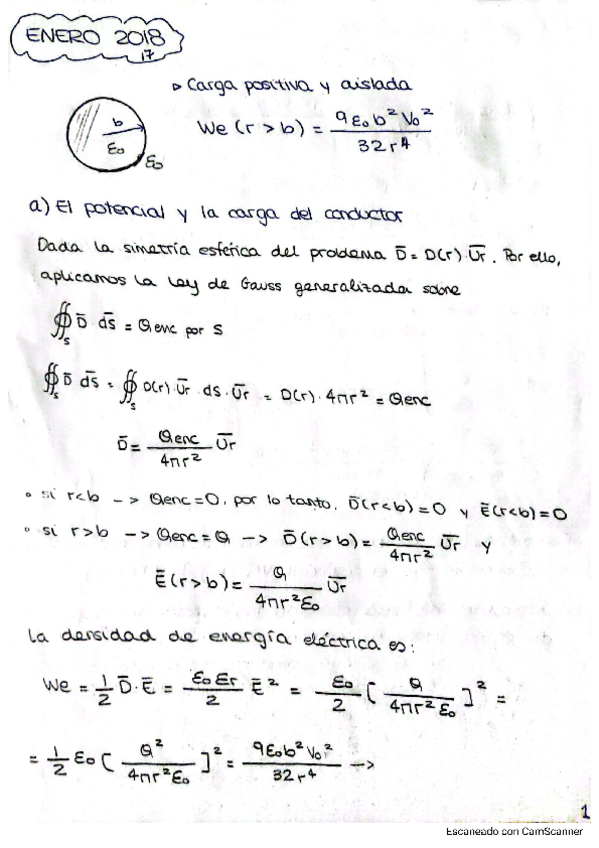 ENERO 2018
17
▹ Carga positiva y aislada
b
ε₀
ε₀
We (r > b) = 9ε₀b²V₀² / 32r⁴
a) El potencial y la carga del conductor
Dada la simetría esférica del problema D̄ = D(r) Ūr. Por ello,
aplicamos la Ley de Gauss generalizada sobre
∯ₛ D̄ ds̄ = Qenc por S
∯ₛ D̄ ds̄ = ∯ₛ D(r) Ūr ds · Ūr = D(r) · 4πr² = Qenc
D̄ = Qenc / 4πr² Ūr
∘ si r<b --> Qenc = 0, por lo tanto, D̄(r<b) = 0 y Ē(r<b) = 0
∘ si r>b --> Qenc = Q --> D̄(r>b) = Qenc / 4πr² Ūr y
Ē(r>b) = Q / 4πr²ε₀ Ūr
La densidad de energía eléctrica es:
We = 1/2 D̄·Ē = ε₀εr / 2 Ē² = ε₀ / 2 [ Q / 4πr²ε₀ ]² =
= 1/2 ε₀ [ Q² / 4πr²ε₀ ]² = 9ε₀b²V₀² / 32r⁴ -->
1
Escaneado con CamScanner